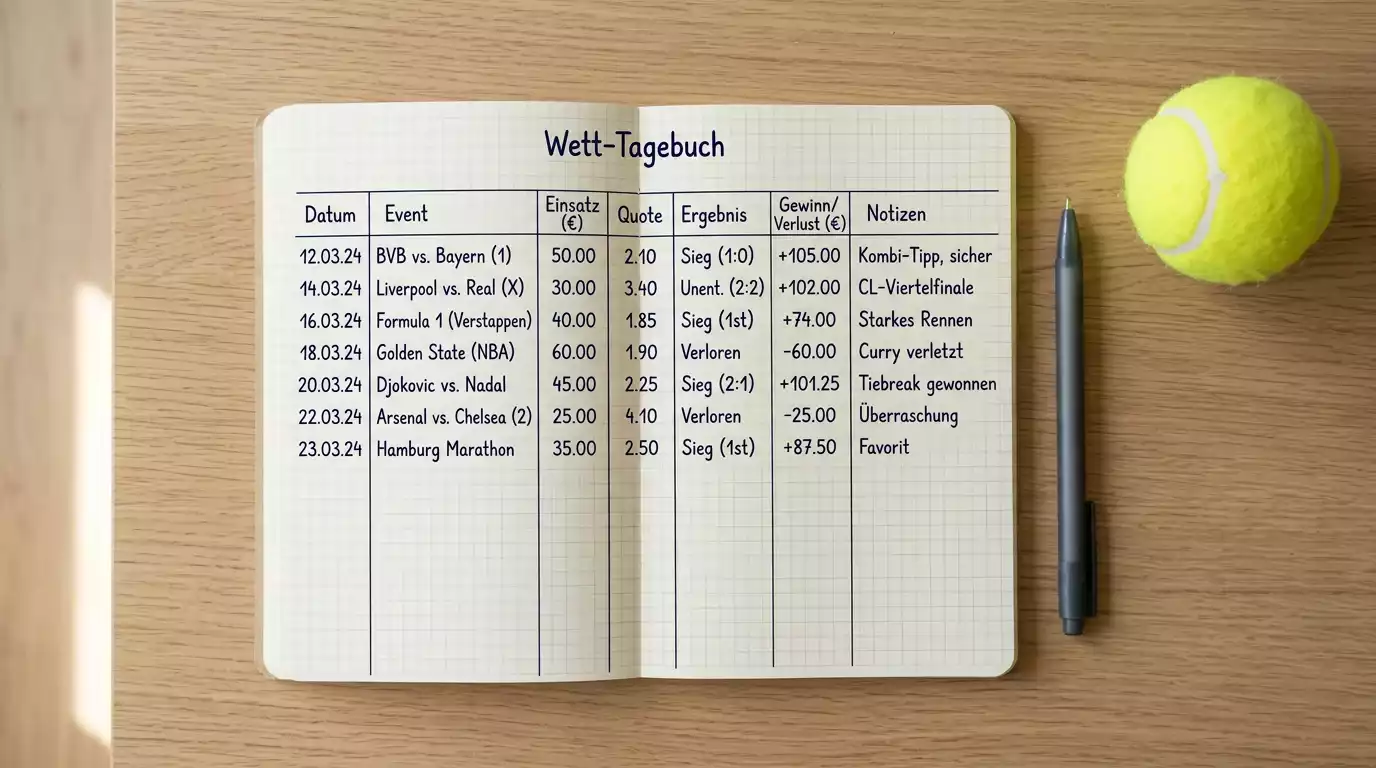 Wett-Tagebuch
Datum Event Einsatz (€) Quote Ergebnis Gewinn/ Verlust (€) Notizen
12.03.24 BVB vs. Bayern (1) 50.00 2.10 Sieg (1:0) +105.00 Kombi-Tipp, sicher
14.03.24 Liverpool vs. Real (X) 30.00 3.40 Unent. (2:2) +102.00 CL-Viertelfinale
16.03.24 Formula 1 (Verstappen) 40.00 1.85 Sieg (1st) +74.00 Starkes Rennen
18.03.24 Golden State (NBA) 60.00 1.90 Verloren -60.00 Curry verletzt
20.03.24 Djokovic vs. Nadal 45.00 2.25 Sieg (2:1) +101.25 Tiebreak gewonnen
22.03.24 Arsenal vs. Chelsea (2) 25.00 4.10 Verloren -25.00 Überraschung
23.03.24 Hamburg Marathon 35.00 2.50 Sieg (1st) +87.50 Favorit